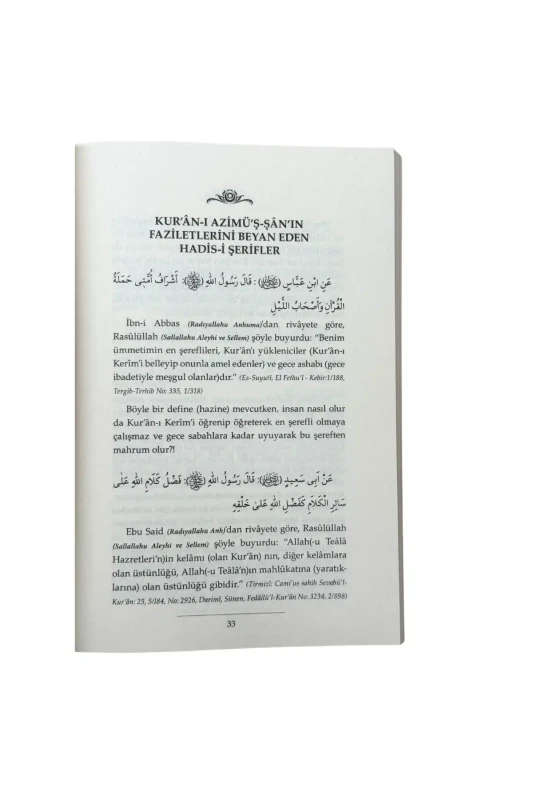 KUR'ÂN-I AZİMÜ'Ş-ŞÂN'IN
FAZİLETLERİNİ BEYAN EDEN
HADİS-İ ŞERİFLER
عَنِ ابْنِ عَبَّاسٍ (): قَالَ رَسُولُ اللهِ (ﷺ): أَشْرَافُ أُمَّتِي حَمَلَةُ
الْقُرْآنِ وَأَصْحَابُ اللَّيْلِ
İbn-i Abbas (Radıyallahu Anhuma)'dan rivâyete göre,
Rasûlüllah (Sallallahu Aleyhi ve Sellem) şöyle buyurdu: “Benim
ümmetimin en şereflileri, Kur'ân'ı yükleniciler (Kur'ân-ı
Kerîm'i belleyip onunla amel edenler) ve gece ashabı (gece
ibadetiyle meşgul olanlar)dır.” (Es-Suyuti, El Fethu'l - Kebir:1/188,
Tergib-Terhib No: 335, 1/318)
Böyle bir define (hazine) mevcutken, insan nasıl olur
da Kur'ân-ı Kerîm'i öğrenip öğreterek en şerefli olmaya
çalışmaz ve gece sabahlara kadar uyuyarak bu şereften
mahrum olur?!
عَنْ أَبِي سَعِيدٍ (): قَالَ رَسُولُ اللهِ (ﷺ): فَضْلُ كَلَامِ اللهِ عَلَى
سَائِرِ الْكَلَامِ كَفَضْلِ اللهِ عَلَى خَلْقِهِ
Ebu Said (Radıyallahu Anh)'dan rivâyete göre, Rasûlüllah
(Sallallahu Aleyhi ve Sellem) şöyle buyurdu: “Allah(-u Teâlâ
Hazretleri'n)in kelâmı (olan Kur'ân) nın, diğer kelâmlara
olan üstünlüğü, Allah(-u Teâlâ'n)ın mahlûkatına (yaratık-
larına) olan üstünlüğü gibidir.” (Tirmizî: Cami'us sahih Sevabü'l-
Kur'ân: 25, 5/184, No: 2926, Darimî, Sünen, Fedâilü'l-Kur'ân No: 3234, 2/898)
33